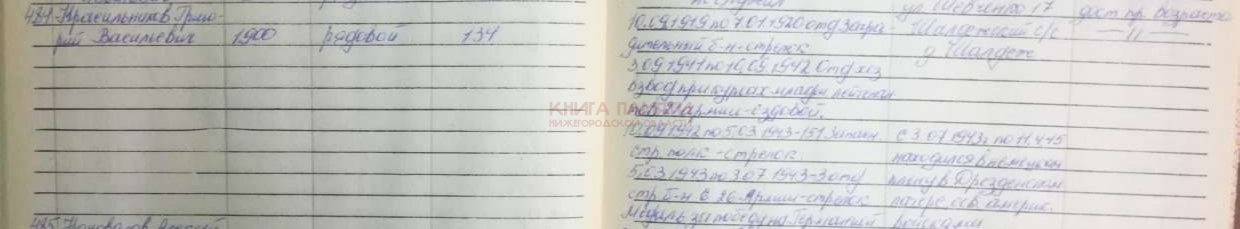 484. Красильников Григо-
рий Васильевич 1900 рядовой 134
ул Шевченко 17 дост. пр. возраста
10.09.1919 по 7.01.1920 отд Загра- Шалдежский с/с —"—
дительный б-н-стрелок д Шалдеж
3.09.1941 по 10.09.1942 Отд хоз
взвод при курсах младш лейтенан
армии-ездовой.
КНИГА ПАМЯТИ
НИЖЕГОРОДСКОЙ ОБЛАСТИ
10.09.1942 по 5.03.1943-151 Запасн. с 3.07.1943г по 11.4.45
стр. полк-стрелок находился в немецком
5.03.1943 по 3.07.1943-3 отд плену в Дрезденском
стр. б-н 26 Армии-стрелок лагере осв. америк.
Медаль за победу на Германией войсками
485. Алексей